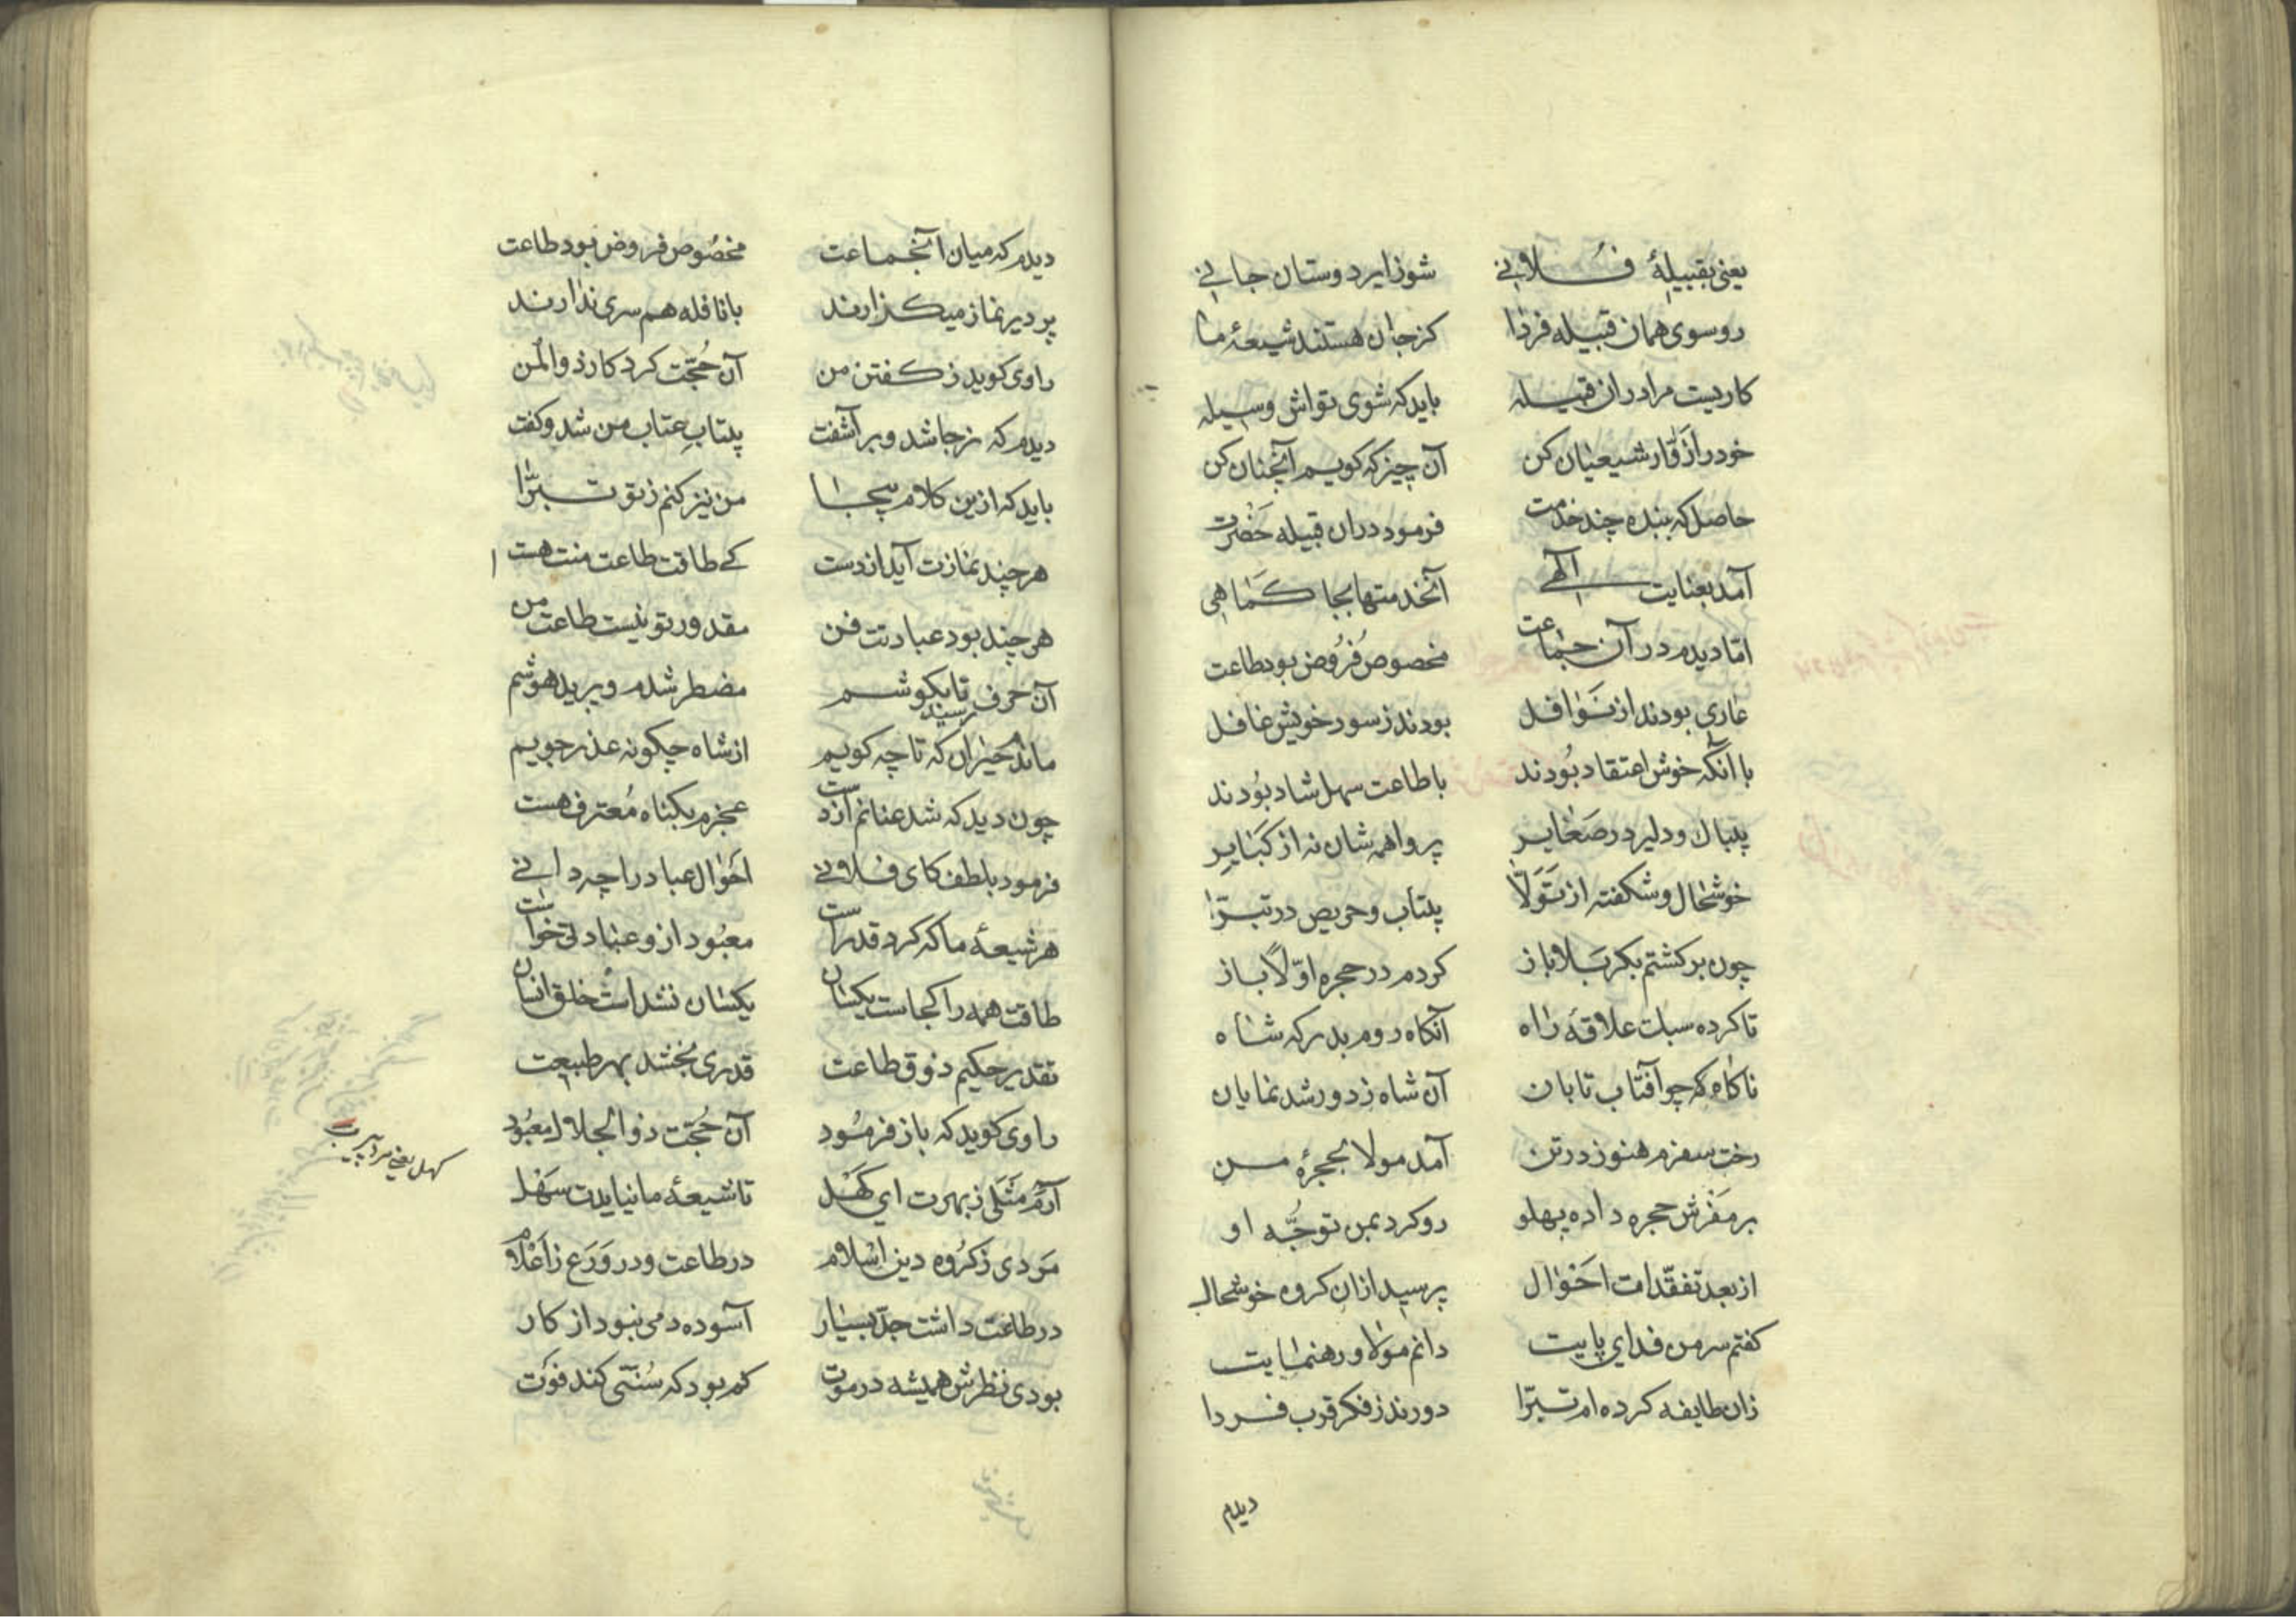 یعنی بقبیلهٔ فلانی شو زایر دوستان جانی
رو سوی همان قبیله فردا کز جان هستند شیعهٔ ما
کاریست مرا در ان قبیله باید که شوی تواش وسیله
خود را ز قار شیعیان کن آن چیز که کویم آنچنان کن
حاصل که بنده چند خدمت فرمود دران قبیله حضرت
آمد بعنایت الٓهی آنخدمتها بجا کماهی
اما دیدم در آن جماعت مخصوص فُرُوض بود طاعت
عاری بودند از نَوافل بودند ز سور خویش غافل
با آنکه خوش اعتقاد بُودند با طاعت سهل شاد بُودند
پیباک و دلیر در صَغایر پروا همه شان نه از کَبَایر
خوشحال و شکفته از تَوَلّا پیتاب و حریص در تبرّا
چون برکشتم بکربلا باز کردم در حجره اوّلاً باز
تا کرده سبلت علاقه راه آنکاه روم بدرکه شاه
ناکاه که چو آفتاب تابان آن شاه ز دور شد نمایان
رخت سفرم هنوز در تن آمد مولا بحجرهٔ من
بر مَفرَش حجره داده پهلو رو کرد بمن توجُّه او
از بعد تفقّدات احوال پرسید ازان کروه خوشحال
کفتم سر من فدای پایت دانم مولا و رهنمایت
زان طایفه کرده ام تبرّا دورند ز فکر قرب فردا
دیدم
دیدم که میان آنجماعت مخصوص فروض بود طاعت
پر دیر نماز میکذارند با نافله هم سری ندارند
راوی کوید ز کفتن من آن حُجّت کردکار ذوالمن
دیدم که ز جا شد و بر آشفت پیتابِ عتاب من شد و کفت
باید که ازین کلام پیجا من نیز کنم ز تو تبرّا
هر چند نمازت آید از دست کے طاقت طاعت منت هست
هر چند بود عبادتت فن مقدور تو نیست طاعت من
آن حرف رسید تا بکوشم مضطر شدم و پرید هوشم
ماندم حیران که تا چه کویم از شاه چکونه عذر جویم
چون دید که شد عنانم از دست عجزم بکناه مُعترف هست
فرمود بلطف کای فلانی احوال عباد را چه دانی
هر شیعهٔ ما که کرد قد راست معبُود ازو عبادتی خواست
طاقت همه را کجاست یکسان یکسان نشداست خلق انسان
تقدیر حکیم ذوق طاعت قدری بخشد بهر طبیعت
راوی کوید که باز فرمُود آن حُجّت ذوالجلال معبُود
آرم مَثَلی ز بهرت ای کَهل تا شیعهٔ ما نیایدت سَهل
کهل یعنی مرد پیریست
مردی ز کروه دین اسلام در طاعت و در وَرَع ز اَعْلام
در طاعت داشت جدّ بسیار آسوده دمی نبود از کار
بودی نظرش همیشه در موت کم بود که سُنّتی کند فوت